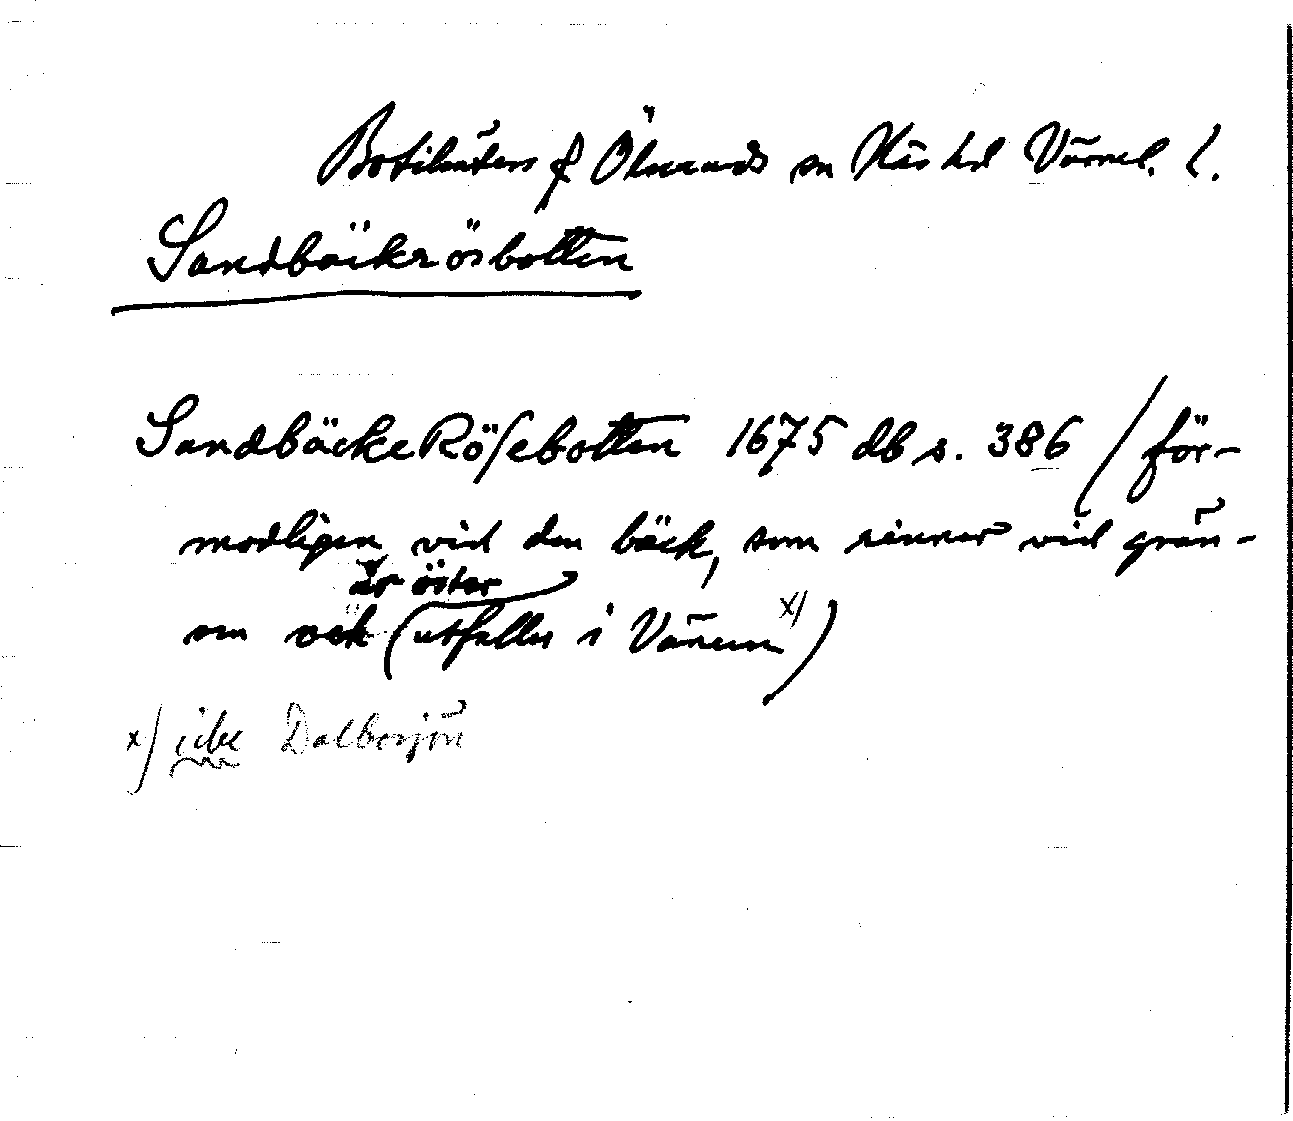 Botilsäters f Ölmeruds sn Näs hd Värml. l.
Sandbäckrösbotten
SandbäckeRösebotten 1675 db s. 386 / för-
modligen vid den bäck, som rinner vid grän-
är öster
om och (utfaller i Vänern x))
x) icke Dalbosjön